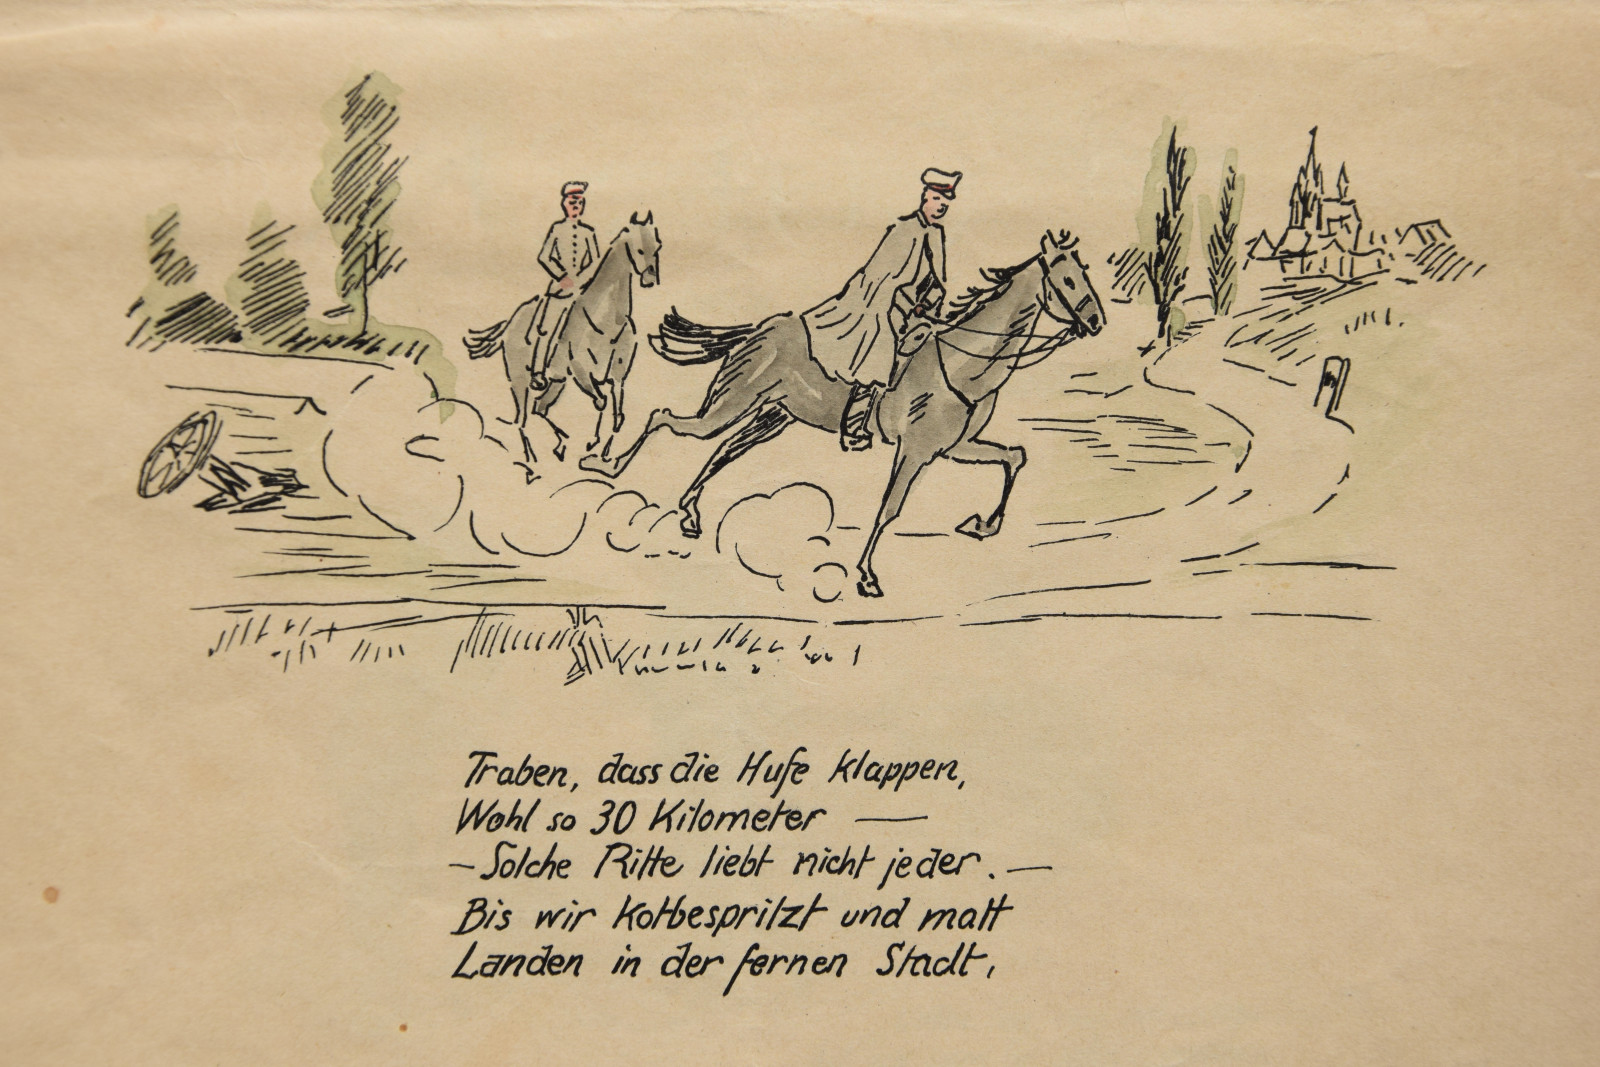 Traben, dass die Hufe klappen,
Wohl so 30 Kilometer —
— Solche Ritte liebt nicht jeder. —
Bis wir kotbespritzt und matt
Landen in der fernen Stadt,